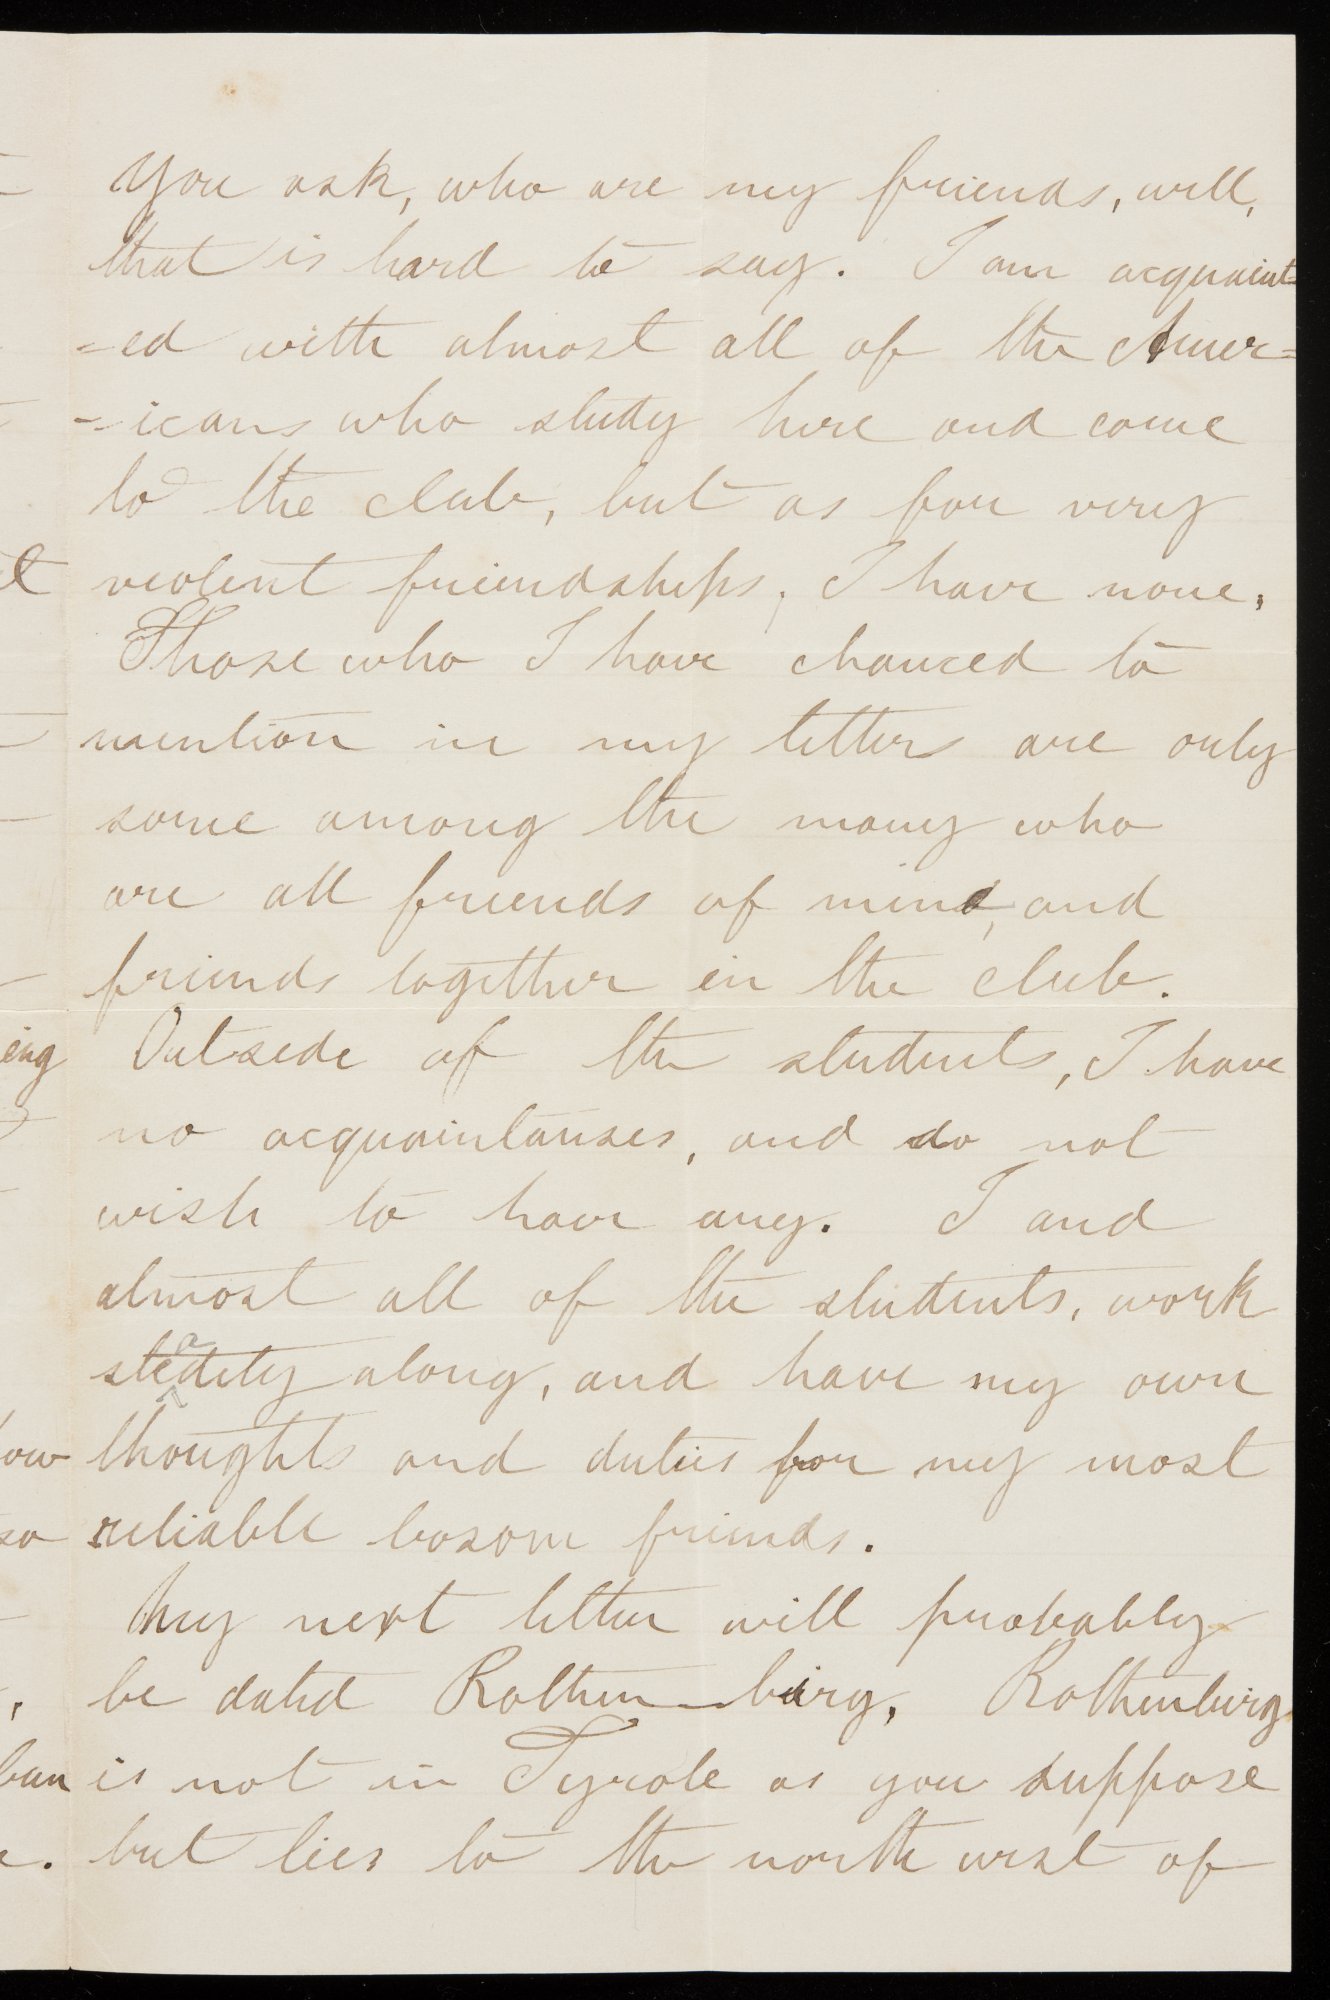 You ask, who are my friends, well,
that is hard to say. I am acquaint-
-ed with almost all of the Amer=
=icans who study here and come
to the club, but as for very
violent friendships, I have none.
Those who I have chanced to
mention in my letters are only
some among the many who
are all friends of mind, and
friends together in the club.
Outside of the students, I have
no acquaintanses, and do not
wish to have any. I and
almost all of the students, work
steadily along, and have my own
thoughts and duties for my most
reliable bosom friends.
My next letter will probably
be dated Rothen-burg, Rothenburg
is not in Tyrole as you suppose
but lies to the north west of